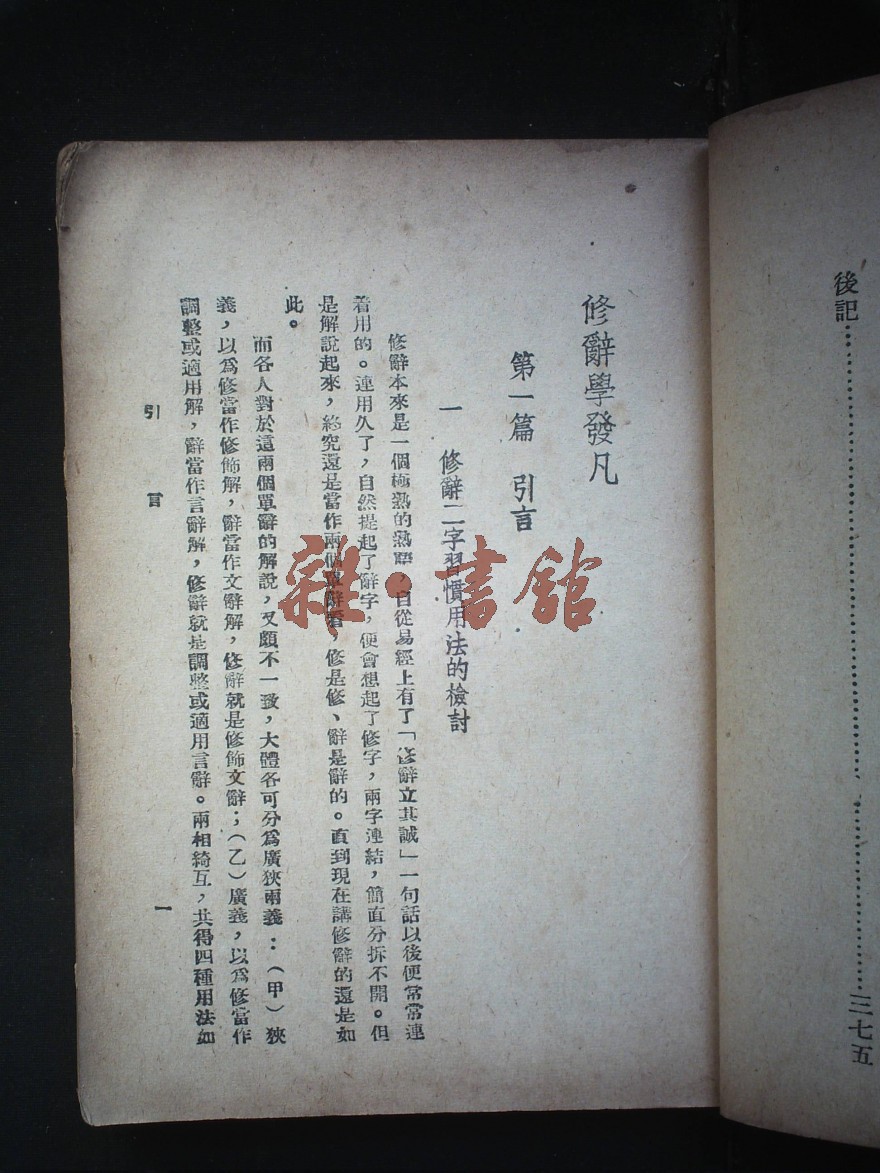 後記……………………………………三七五
修辭學發凡
第一篇 引言
一 修辭二字習慣用法的檢討
修辭本來是一個極熟的熟語,自從易經上有了「修辭立其誠」一句話以後便常常連
着用的。連用久了,自然提起了辭字,便會想起了修字,兩字連結,簡直分拆不開。但
是解說起來,終究還是當作兩個單辭看,修是修、辭是辭的。直到現在講修辭的還是如
此。
而各人對於這兩個單辭的解說,又頗不一致,大體各可分爲廣狹兩義:(甲)狹
義,以爲修當作修飾解,辭當作文辭解,修辭就是修飾文辭;(乙)廣義,以爲修當作
調整或適用解,辭當作言辭解,修辭就是調整或適用言辭。兩相綺互,共得四種用法如
引言
一
雜·書館